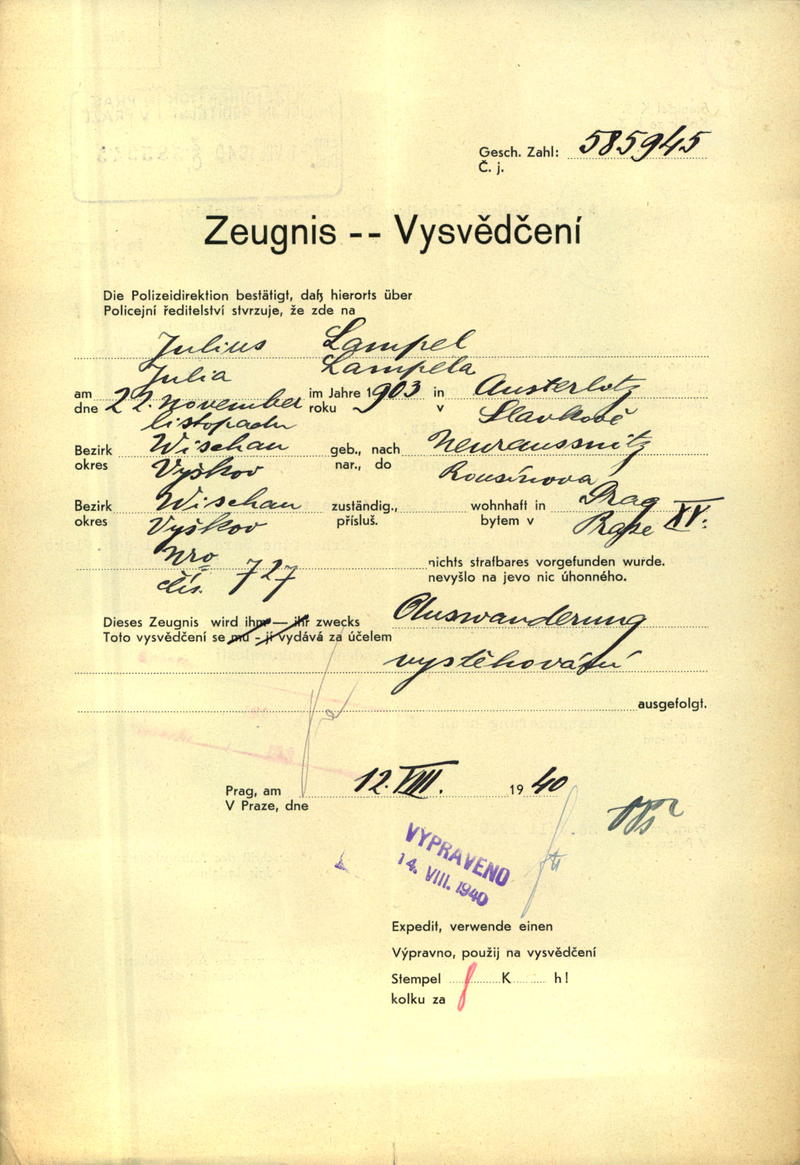 Gesch. Zahl: 585945
Č. j.
Zeugnis -- Vysvědčení
Die Polizeidirektion bestätigt, daß hierorts über
Policejní ředitelství stvrzuje, že zde na
Julius Lampel
Julia Lampela
am 22. November im Jahre 1903 in Austerlitz
dne listopadu roku v Slavkově
Bezirk Wischau geb., nach Neuraussnitz
okres Vyškov nar., do Rousínova
Bezirk Wischau zuständig., wohnhaft in Prag XV.
okres Vyškov přísluš. bytem v Praze
Nro 727 nichts strafbares vorgefunden wurde.
čís. nevyšlo na jevo nic úhonného.
Dieses Zeugnis wird ihm — ihr zwecks Auswanderung
Toto vysvědčení se mu - jí vydává za účelem
vystěhování
ausgefolgt.
Prag, am 12. VIII. 1940
V Praze, dne
VYPRAVENO
14. VIII. 1940
Expedit, verwende einen
Výpravno, použij na vysvědčení
Stempel K h!
kolku za